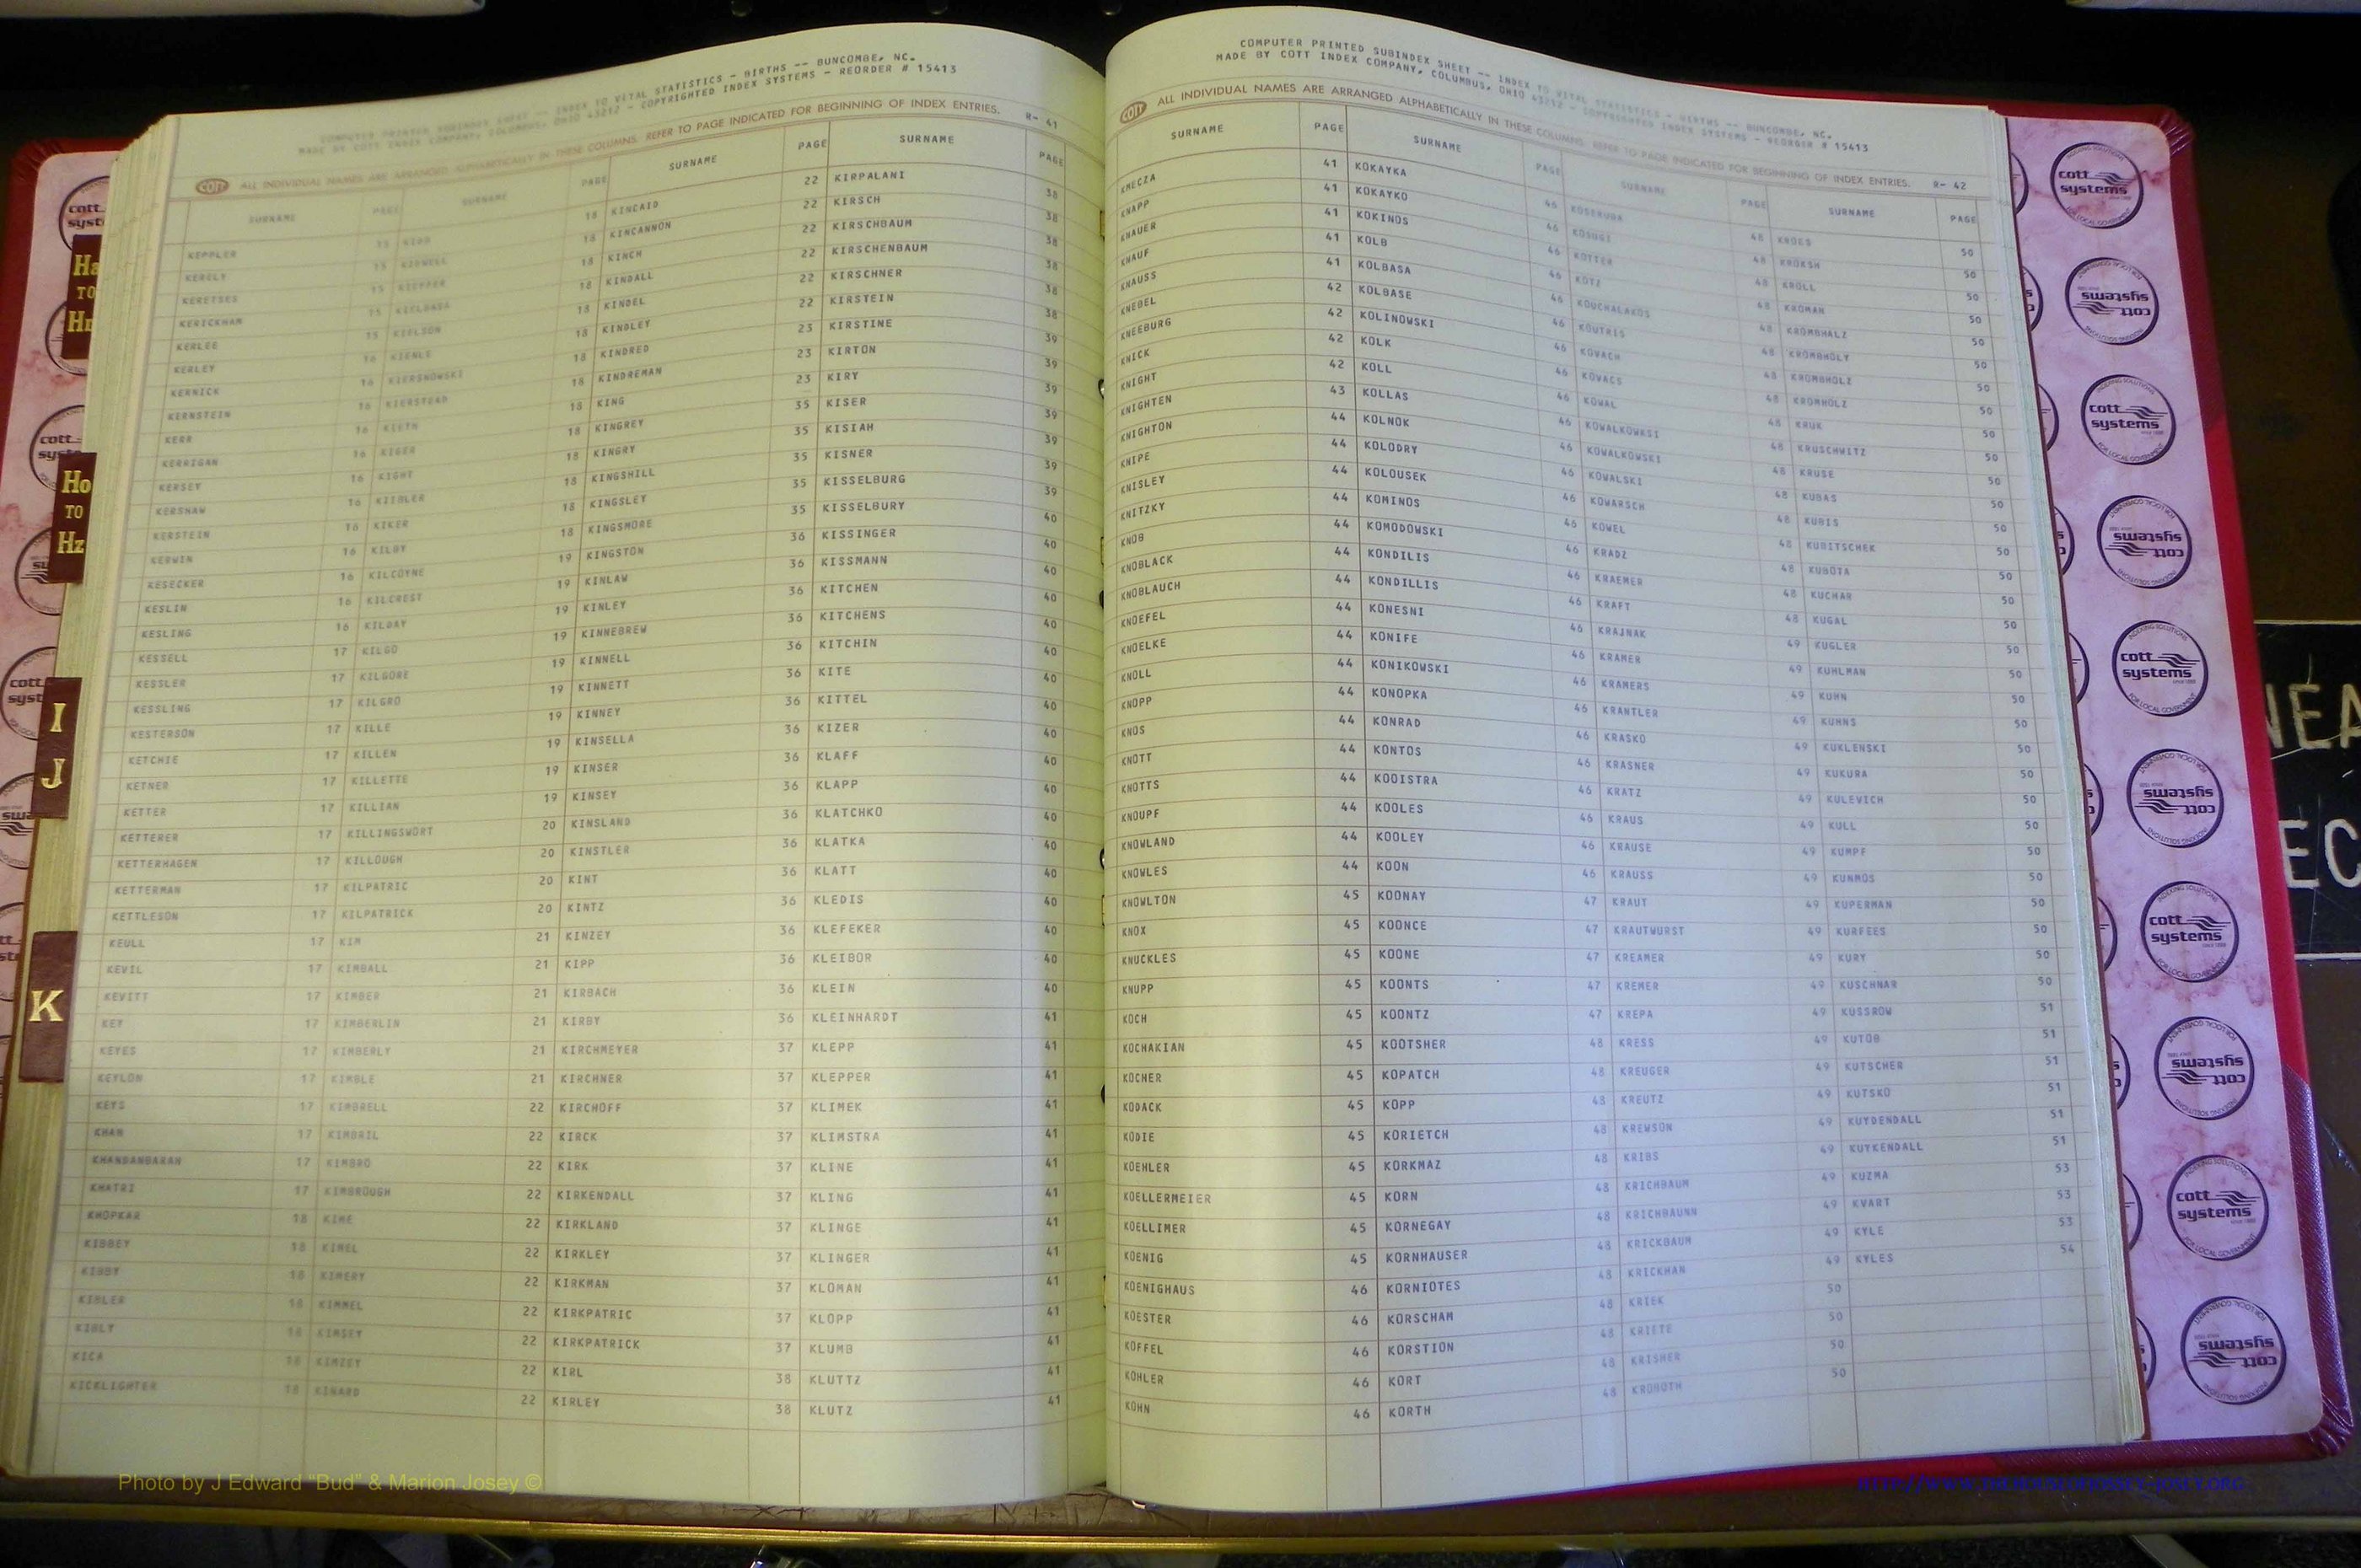 COMPUTER PRINTED SUBINDEX SHEET -- INDEX TO VITAL STATISTICS - BIRTHS -- BUNCOMBE, NC.
MADE BY COTT INDEX COMPANY, COLUMBUS, OHIO 43212 - COPYRIGHTED INDEX SYSTEMS - REORDER # 15413
COTT ALL INDIVIDUAL NAMES ARE ARRANGED ALPHABETICALLY IN THESE COLUMNS. REFER TO PAGE INDICATED FOR BEGINNING OF INDEX ENTRIES. R- 41
SURNAME PAGE SURNAME PAGE SURNAME PAGE SURNAME PAGE
KEPPLER 15 18 KINCAID 22 KIRPALANI 38
15 KIDWELL 18 KINCANNON 22 KIRSCH 38
KERETSES 15 KIEFFER 18 KINCH 22 KIRSCHBAUM 38
KERICKHAM 15 KIELBASA 18 KINDALL 22 KIRSCHENBAUM 38
KERLEE 15 KIELSON 18 KINDEL 22 KIRSCHNER 38
KERLEY 16 KIENLE 18 KINDLEY 22 KIRSTEIN 38
KERNICK 16 KIERSNOWSKI 18 KINDRED 23 KIRSTINE 39
KERNSTEIN 16 KIERSTEAD 18 KINDREMAN 23 KIRTON 39
KERR 16 KIETH 18 KING 23 KIRY 39
KERRIGAN 16 KIGER 18 KINGREY 35 KISER 39
KERSEY 16 KIGHT 18 KINGRY 35 KISIAH 39
KERSHAW 16 KIIBLER 18 KINGSHILL 35 KISNER 39
KERSTEIN 16 KIKER 18 KINGSLEY 35 KISSELBURG 39
KERWIN 16 KILBY 18 KINGSMORE 35 KISSELBURY 40
KESECKER 16 KILCOYNE 19 KINGSTON 36 KISSINGER 40
KESLIN 16 KILCREST 19 KINLAW 36 KISSMANN 40
KESLING 16 KILDAY 19 KINLEY 36 KITCHEN 40
KESSELL 17 KILGO 19 KINNEBREW 36 KITCHENS 40
KESSLER 17 KILGORE 19 KINNELL 36 KITCHIN 40
KESSLING 17 KILGRO 19 KINNETT 36 KITE 40
KESTERSON 17 KILLE 19 KINNEY 36 KITTEL 40
KETCHIE 17 KILLEN 19 KINSELLA 36 KIZER 40
KETNER 17 KILLETTE 19 KINSER 36 KLAFF 40
KETTER 17 KILLIAN 19 KINSEY 36 KLAPP 40
KETTERER 17 KILLINGSWORT 20 KINSLAND 36 KLATCHKO 40
KETTERHAGEN 17 KILLOUGH 20 KINSTLER 36 KLATKA 40
KETTERMAN 17 KILPATRIC 20 KINT 36 KLATT 40
KETTLESON 17 KILPATRICK 20 KINTZ 36 KLEDIS 40
KEULL 17 KIM 21 KINZEY 36 KLEFEKER 40
KEVIL 17 KIMBALL 21 KIPP 36 KLEIBOR 40
KEVITT 17 KIMBER 21 KIRBACH 36 KLEIN 40
KEY 17 KIMBERLIN 21 KIRBY 36 KLEINHARDT 41
KEYES 17 KIMBERLY 21 KIRCHMEYER 37 KLEPP 41
KEYLON 17 KIMBLE 21 KIRCHNER 37 KLEPPER 41
KEYS 17 KIMBRELL 22 KIRCHOFF 37 KLIMEK 41
KHAN 17 KIMBRIL 22 KIRCK 37 KLIMSTRA 41
KHANDANBARAH 17 KIMBRO 22 KIRK 37 KLINE 41
KHATRI 17 KIMBROUGH 22 KIRKENDALL 37 KLING 41
KHOPKAR 18 KIME 22 KIRKLAND 37 KLINGE 41
KIBBEY 18 KIMEL 22 KIRKLEY 37 KLINGER 41
KIBBY 18 KIMERY 22 KIRKMAN 37 KLOMAN 41
KIBLER 18 KIMMEL 22 KIRKPATRIC 37 KLOPP 41
KIBLY 18 KIMSEY 22 KIRKPATRICK 37 KLUMB 41
KICA 18 KIMZEY 22 KIRL 38 KLUTTZ 41
KICKLIGHTER 18 KINARD 22 KIRLEY 38 KLUTZ 41
COMPUTER PRINTED SUBINDEX SHEET -- INDEX TO VITAL STATISTICS - BIRTHS -- BUNCOMBE, NC.
MADE BY COTT INDEX COMPANY, COLUMBUS, OHIO 43212 - COPYRIGHTED INDEX SYSTEMS - REORDER # 15413
COTT ALL INDIVIDUAL NAMES ARE ARRANGED ALPHABETICALLY IN THESE COLUMNS. REFER TO PAGE INDICATED FOR BEGINNING OF INDEX ENTRIES. R- 42
SURNAME PAGE SURNAME PAGE SURNAME PAGE SURNAME PAGE
KMECZA 41 KOKAYKA 46 48 KROES 50
KNAPP 41 KOKAYKO 46 KOSUGI 48 KROKSH 50
KNAUER 41 KOKINOS 46 KOTTER 48 KROLL 50
KNAUF 41 KOLB 46 KOTZ 48 KROMAN 50
KNAUSS 41 KOLBASA 46 KOUCHALAKOS 48 KROMBHALZ 50
KNEBEL 42 KOLBASE 46 KOUTRIS 48 KROMBHOLY 50
KNEEBURG 42 KOLINOWSKI 46 KOVACH 48 KROMBHOLZ 50
KNICK 42 KOLK 46 KOVACS 48 KROMHOLZ 50
KNIGHT 42 KOLL 46 KOWAL 48 KRUK 50
KNIGHTEN 43 KOLLAS 46 KOWALKOWKSI 48 KRUSCHWITZ 50
KNIGHTON 44 KOLNOK 46 KOWALKOWSKI 48 KRUSE 50
KNIPE 44 KOLODRY 46 KOWALSKI 48 KUBAS 50
KNISLEY 44 KOLOUSEK 46 KOWARSCH 48 KUBIS 50
KNITZKY 44 KOMINOS 46 KOWEL 48 KUBITSCHEK 50
KNOB 44 KOMODOWSKI 46 KRADZ 48 KUBOTA 50
KNOBLACK 44 KONDILIS 46 KRAEMER 48 KUCHAR 50
KNOBLAUCH 44 KONDILLIS 46 KRAFT 48 KUGAL 50
KNOEFEL 44 KONESNI 46 KRAJNAK 49 KUGLER 50
KNOELKE 44 KONIFE 46 KRAMER 49 KUHLMAN 50
KNOLL 44 KONIKOWSKI 46 KRAMERS 49 KUHN 50
KNOPP 44 KONOPKA 46 KRANTLER 49 KUHNS 50
KNOS 44 KONRAD 46 KRASKO 49 KUKLENSKI 50
KNOTT 44 KONTOS 46 KRASNER 49 KUKURA 50
KNOTTS 44 KOOISTRA 46 KRATZ 49 KULEVICH 50
KNOUPF 44 KOOLES 46 KRAUS 49 KULL 50
KNOWLAND 44 KOOLEY 46 KRAUSE 49 KUMPF 50
KNOWLES 44 KOON 46 KRAUSS 49 KUNMOS 50
KNOWLTON 45 KOONAY 47 KRAUT 49 KUPERMAN 50
KNOX 45 KOONCE 47 KRAUTWURST 49 KURFEES 50
KNUCKLES 45 KOONE 47 KREAMER 49 KURY 50
KNUPP 45 KOONTS 47 KREMER 49 KUSCHNAR 50
KOCH 45 KOONTZ 47 KREPA 49 KUSSROW 51
KOCHAKIAN 45 KOOTSHER 48 KRESS 49 KUTOB 51
KOCHER 45 KOPATCH 48 KREUGER 49 KUTSCHER 51
KODACK 45 KOPP 48 KREUTZ 49 KUTSKO 51
KODIE 45 KORIETCH 48 KREWSON 49 KUYDENDALL 51
KOEHLER 45 KORKMAZ 48 KRIBS 49 KUYKENDALL 51
KOELLERMEIER 45 KORN 48 KRICHBAUM 49 KUZMA 53
KOELLIMER 45 KORNEGAY 48 KRICHBAUNN 49 KVART 53
KOENIG 45 KORNHAUSER 48 KRICKBAUM 49 KYLE 53
KOENIGHAUS 46 KORNIOTES 48 KRICKHAN 49 KYLES 54
KOESTER 46 KORSCHAM 48 KRIEK 50
KOFFEL 46 KORSTION 48 KRIETE 50
KOHLER 46 KORT 48 KRISHER 50
KOHN 46 KORTH 48 KROBOTH 50
Ho
TO
Hz
I
J
K
cott
systems
Photo by J Edward "Bud" & Marion Josey ©
HTTP://WWW.THEHOUSEOFJOSSEY-JOSEY.ORG